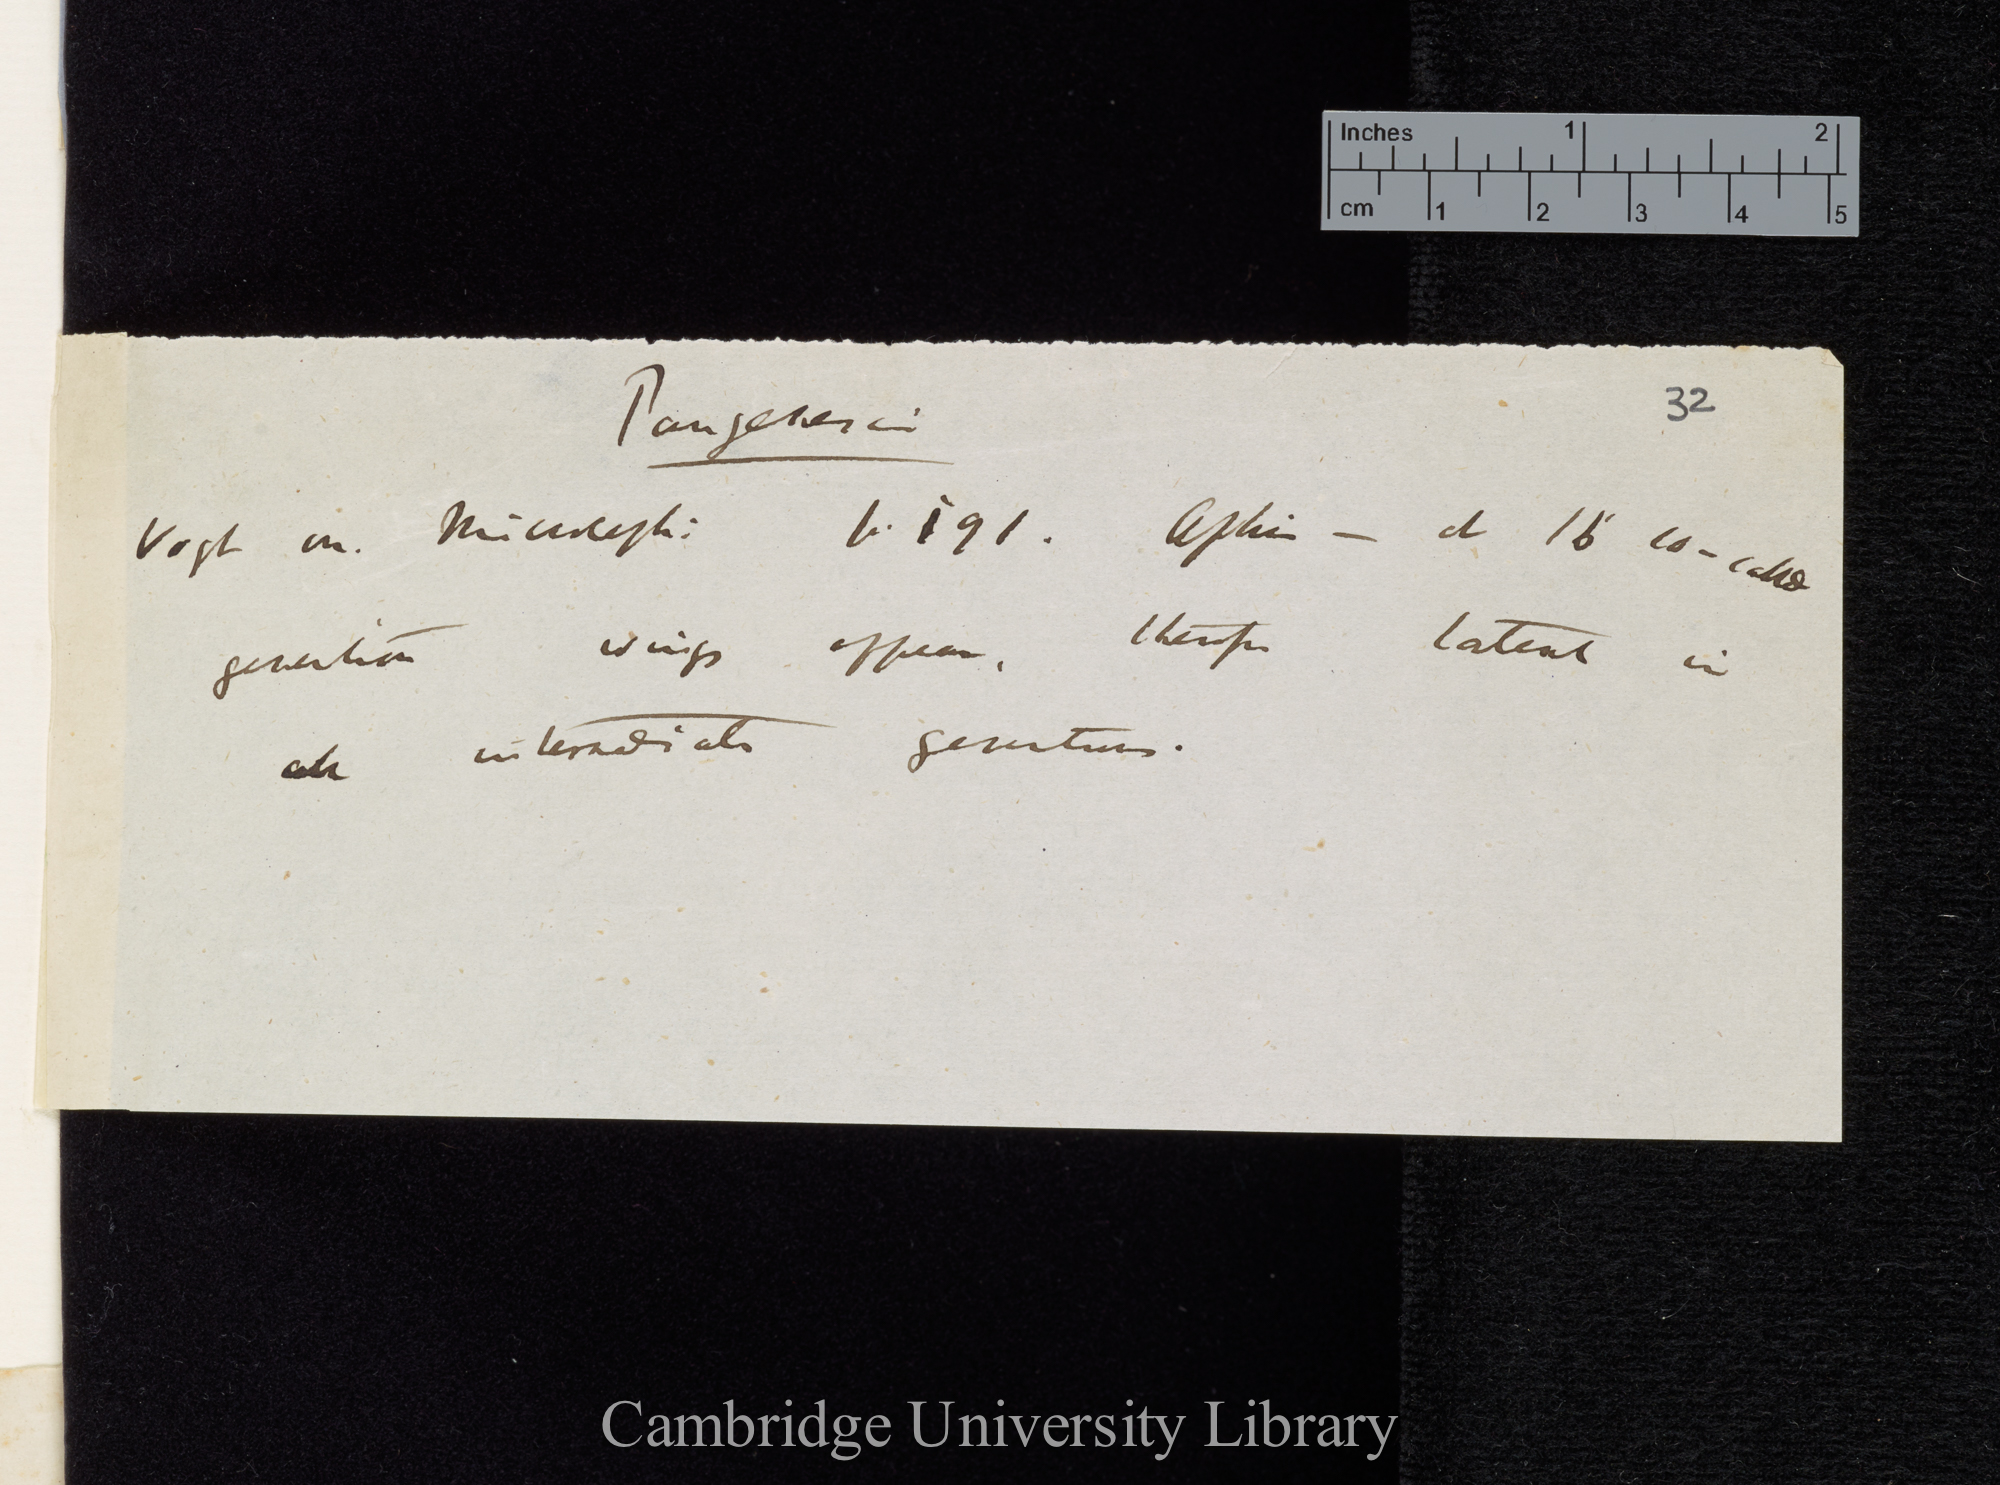 Inches 1 2
cm 1 2 3 4 5
32
Pangenesis
Vogt on Microceph: p. 191. Aphis — at 16 so-called
generation wings appear, therefore latent in
all intermediate generations.
Cambridge University Library